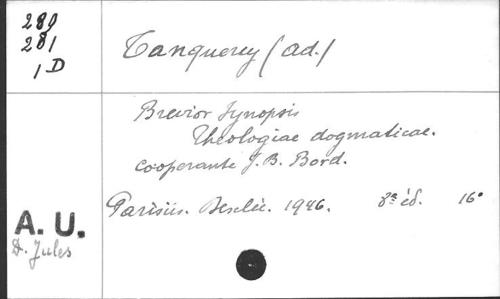 280
281
1 D
Tanquerey (Ad.)
Brevior Synopsis
Theologiae dogmaticae.
cooperante J. B. Bord.
Parisiis. Desclée. 1946. 8ª éd. 16°
A. U.
D. Jules